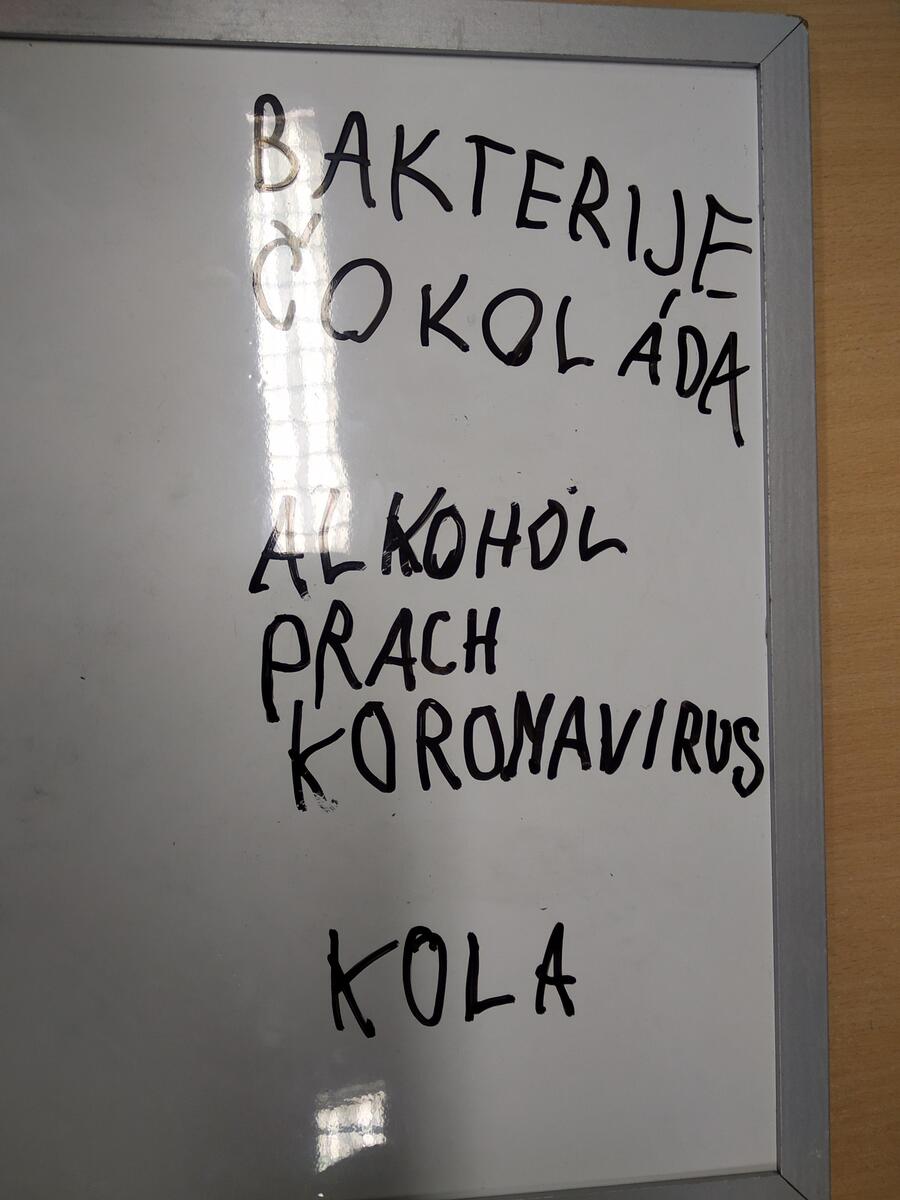 BAKTERIJE
ČOKOLÁDA
ALKOHOL
PRACH
KORONAVIRUS
KOLA